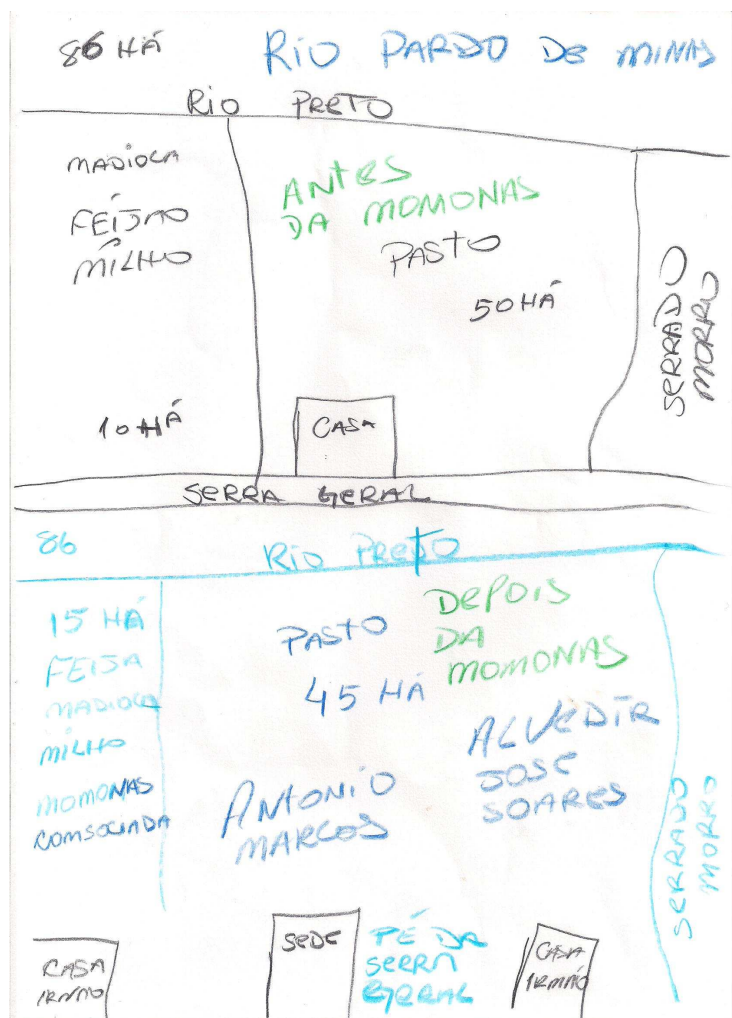 86 HÁ
RIO PARDO DE MINAS
RIO PRETO
MADIOCA
FEIJÃO
MILHO
10 HÁ
ANTES
DA MOMONAS
PASTO
50 HÁ
CASA
SERRADO
MORRO
SERRA GERAL
86
RIO PRETO
15 HÁ
FEIJA
MADIOCA
MILHO
MOMONAS
COMSOCIADA
PASTO
45 HÁ
DEPOIS
DA
MOMONAS
ANTONIO
MARCOS
ALVEDIR
JOSE
SOARES
SERRADO
MORRO
CASA
IRMÃO
SEDE
PÉ DA
SERRA
GERAL
CASA
IRMÃO